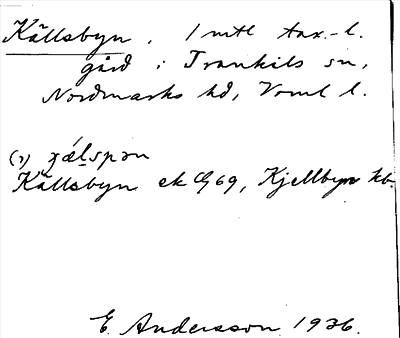 Källsbyn. 1 mtl tax.-l.
gård i Trankils sn,
Nordmarks hd, Vrml l.
(1) χǽlspən
Källsbyn ek G 69, Kjellbyn kb.
E. Andersson 1936.